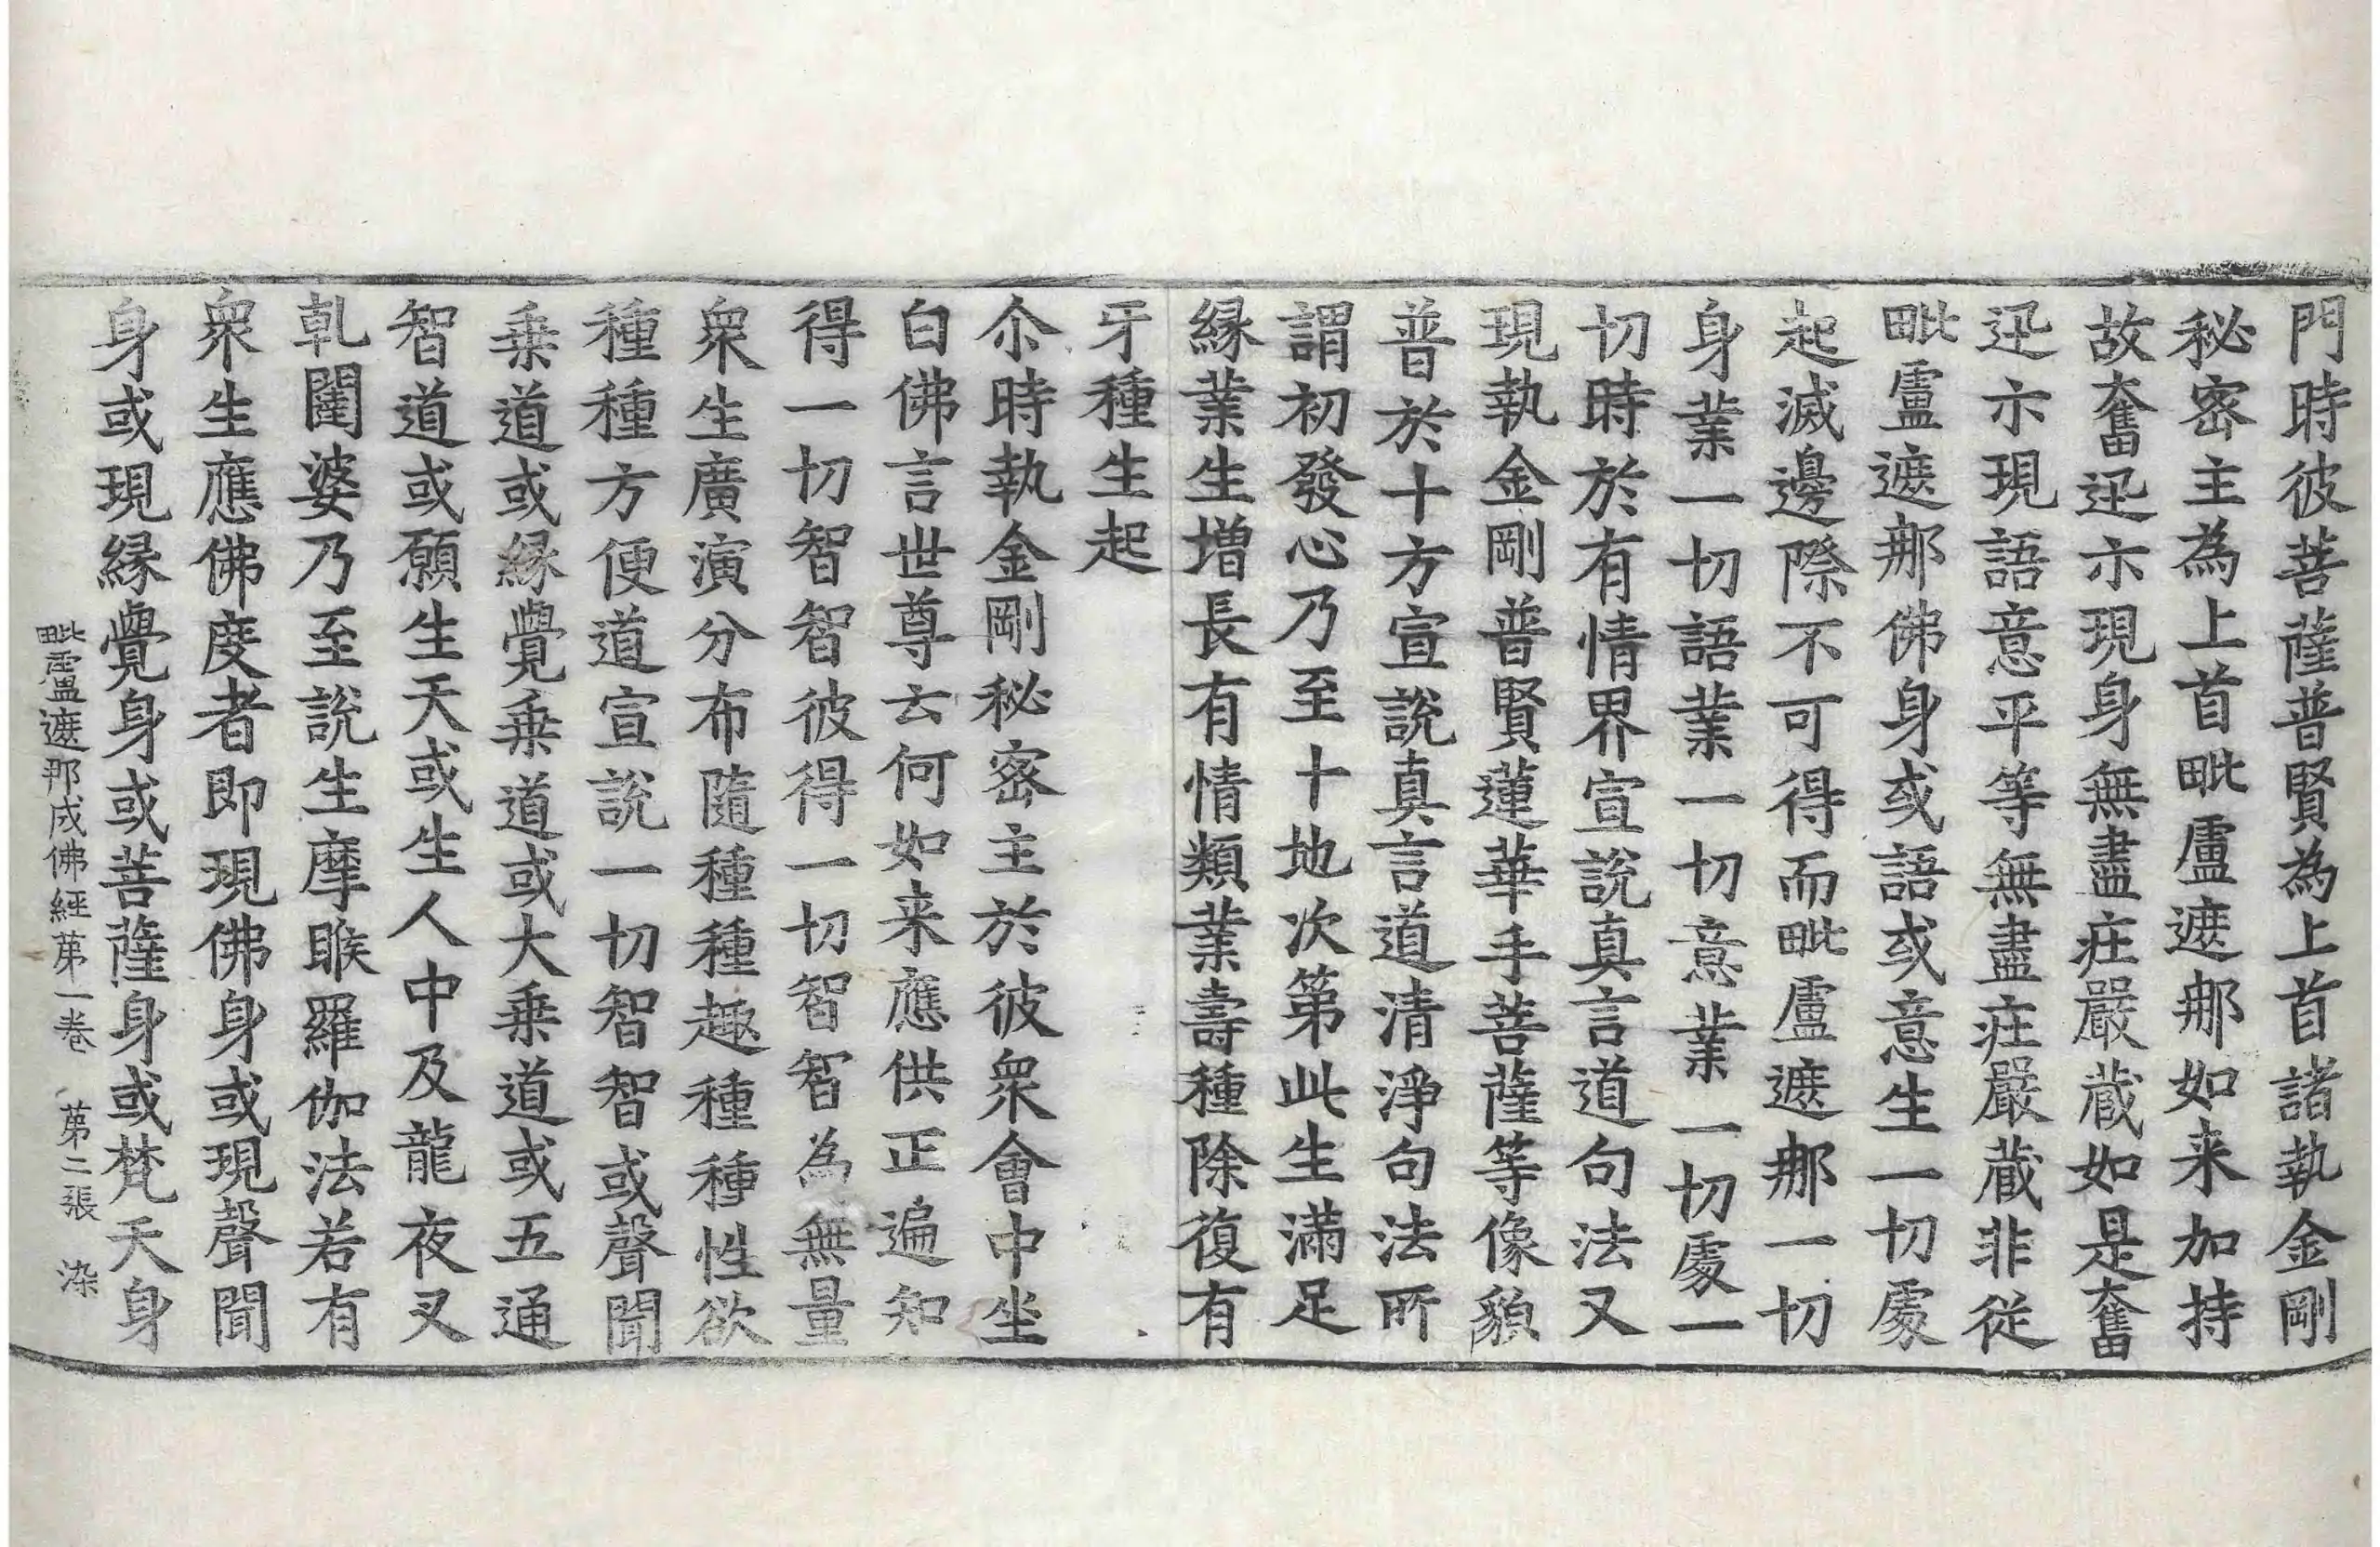 門時彼菩薩普賢為上首諸執金剛
秘密主為上首毗盧遮𨙻如来加持
故奮迅示現身無盡莊嚴蔵如是奮
迅示現語意平等無盡莊嚴蔵非從
毗盧遮𨙻佛身或語或意生一切處
起滅邊際不可得而毗盧遮𨙻一切
身業一切語業一切意業一切處一
切時於有情界宣說真言道句法又
現執金剛普賢蓮華手菩薩等像貌
普於十方宣說真言道清淨句法所
謂初發心乃至十地次第此生滿足
縁業生增長有情類業壽種除復有
牙種生起
尒時執金剛秘密主於彼衆會中坐
白佛言世尊云何如来應供正遍知
得一切智智彼得一切智智為無量
衆生廣演分布隨種種趣種種性欲
種種方便道宣說一切智智或聲聞
乗道或縁覺乗道或大乗道或五通
智道或願生天或生人中及龍夜叉
乹闥婆乃至說生摩睺羅伽法若有
衆生應佛度者即現佛身或現聲聞
身或現縁覺身或菩薩身或梵天身
毗盧遮那成佛經第一卷 第二張 染